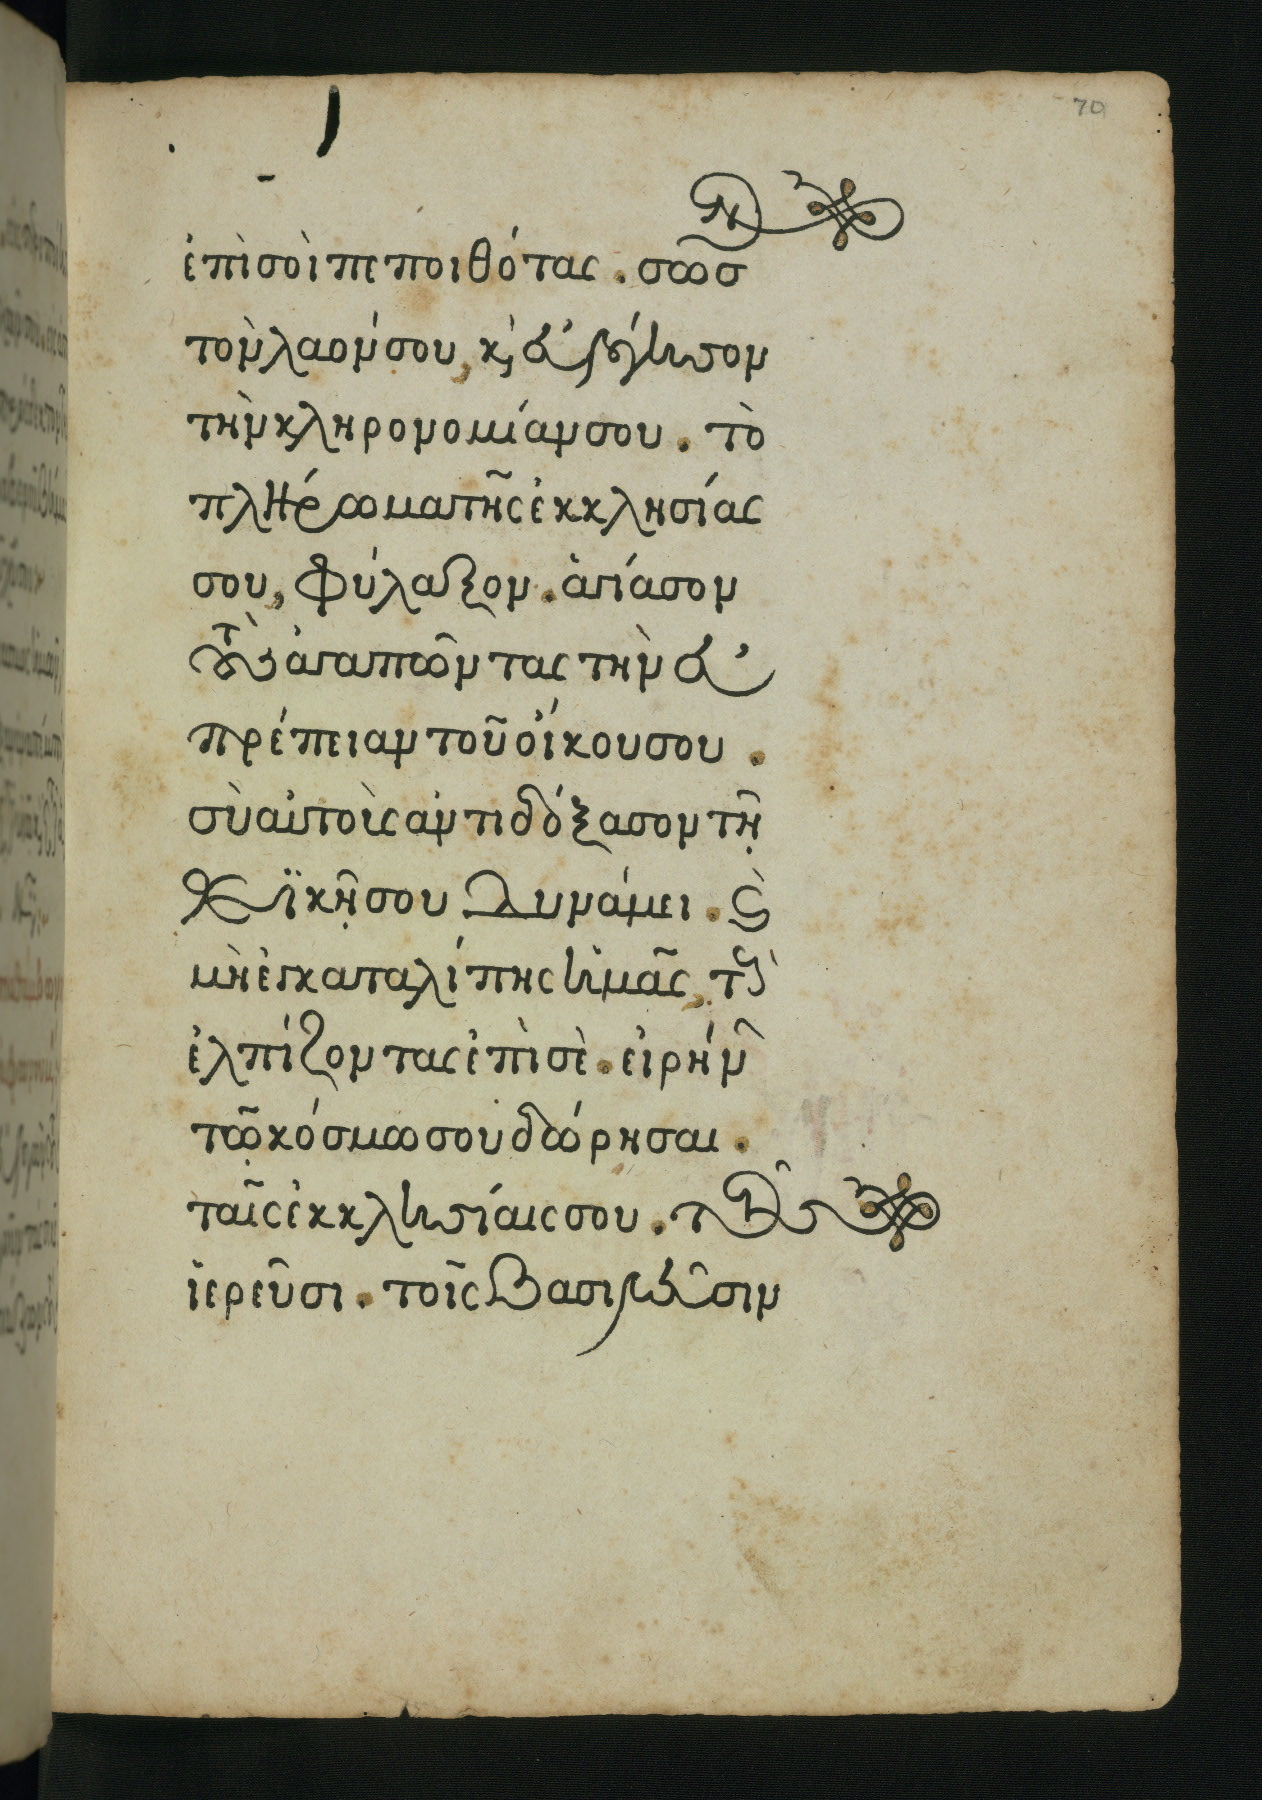 70
ἐπὶ σοὶ πεποιθότας. σῶσον
τὸν λαόν σου, κ, εὐλόγησον
τὴν κληρονομίαν σου. τὸ
πλήρωμα τῆς ἐκκλησίας
σου, φύλαξον. ἁγίασον
τοὺς ἀγαπῶντας τὴν εὐ
πρέπειαν τοῦ οἴκου σου.
σὺ αὐτοὺς ἀντιδόξασον τῆ
θεϊκῆ σου δυνάμει. καὶ
μὴ ἐγκαταλίπης ἡμᾶς, τοὺς
ἐλπίζοντας ἐπὶ σὲ. εἰρήνην
τῶ κόσμω σου δώρησαι.
ταῖς ἐκκλησίαις σου. τοῖς
ἱερεῦσι. τοῖς βασιλεῦσιν